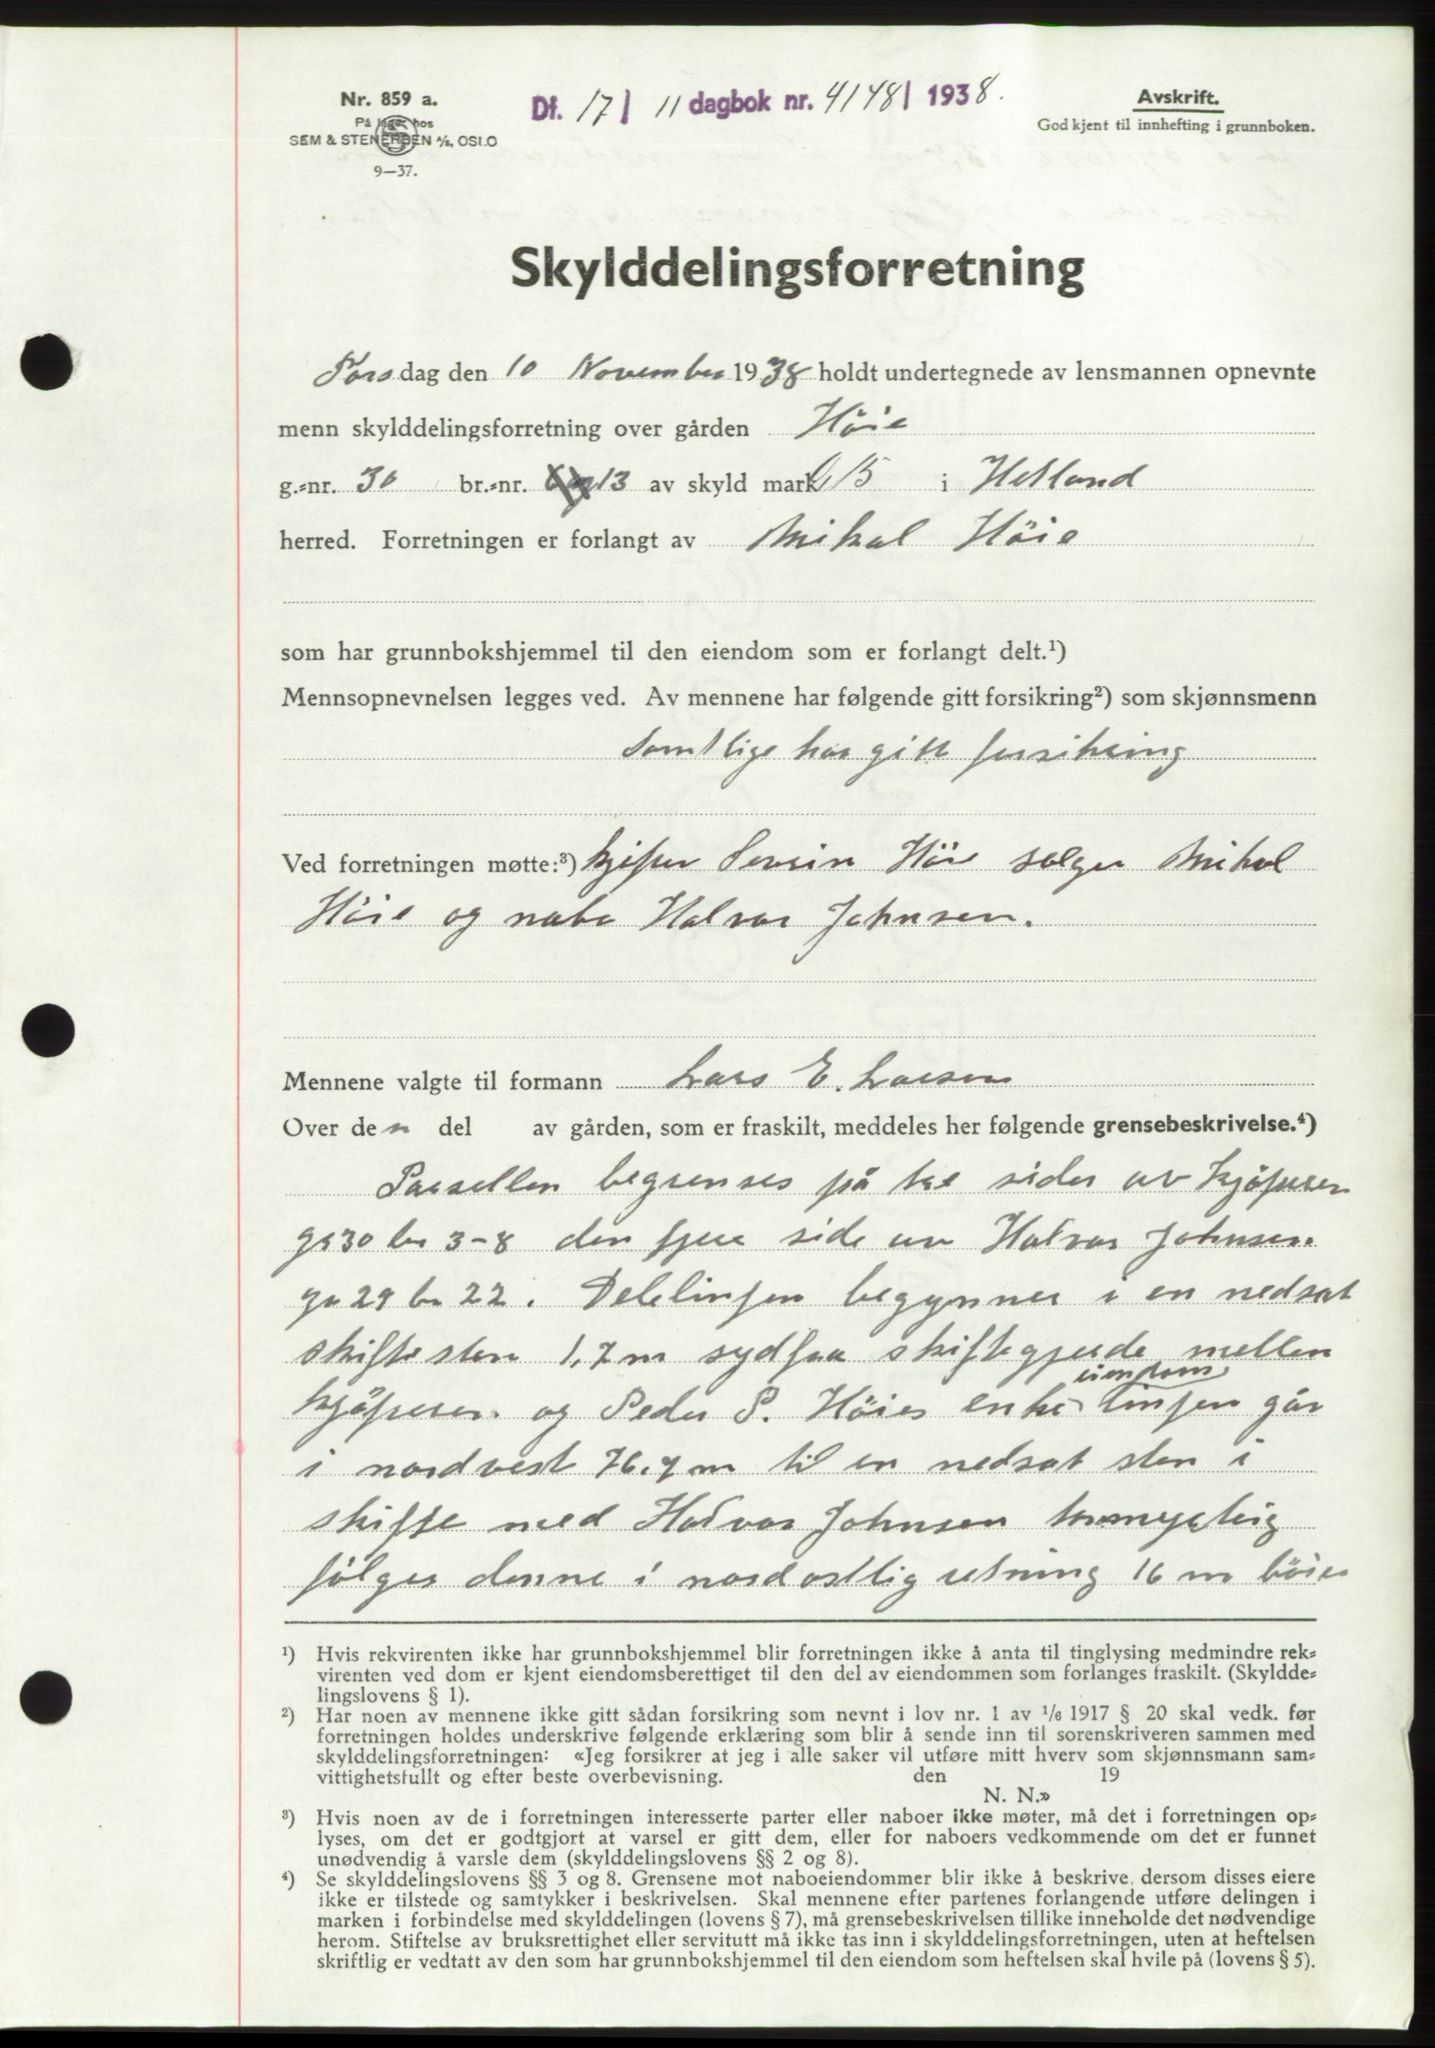 Nr. 859 a.
På lager hos
SEM & STENERSEN A/S, OSLO
9—37.
Df. 17/ 11 dagbok nr. 4148/ 1938.
Avskrift.
Godkjent til innhefting i grunnboken.
Skylddelingsforretning
Torsdag den 10 November 1938 holdt undertegnede av lensmannen opnevnte
menn skylddelingsforretning over gården Höie
g.-nr. 30 br.-nr. 13 av skyld mark 15 i Hetland
herred. Forretningen er forlangt av Mikal Höie
som har grunnbokshjemmel til den eiendom som er forlangt delt.¹)
Mennsopnevnelsen legges ved. Av mennene har følgende gitt forsikring²) som skjønnsmenn
Samtlige har gitt forsikring
Ved forretningen møtte:³) kjöper Sevrin Höie selger Mikal
Höie og nabo Halvar Johnsen.
Mennene valgte til formann Lars E. Larsen
Over den del av gården, som er fraskilt, meddeles her følgende grensebeskrivelse.⁴)
Parsellen begrenses på tre sider av kjöperen
gr 30 br 3-8 den fjere side av Halvar Johnsen.
gr 29 br 22. Delelinjen begynner i en nedsat
skiftesten 1,7 m syd fra skiftegjerde mellem
kjöperen og Peder P. Höies enke eiendom linjen går
i nordvest 76.7 m til en nedsat sten i
skifte med Halvar Johnsen
fölger denne i nordostlig retning 16 m böier
¹) Hvis rekvirenten ikke har grunnbokshjemmel blir forretningen ikke å anta til tinglysing medmindre rek-
virenten ved dom er kjent eiendomsberettiget til den del av eiendommen som forlanges fraskilt. (Skyldde-
lingslovens § 1).
²) Har noen av mennene ikke gitt sådan forsikring som nevnt i lov nr. 1 av 1/6 1917 § 20 skal vedk. før
forretningen holdes underskrive følgende erklæring som blir å sende inn til sorenskriveren sammen med
skylddelingsforretningen: «Jeg forsikrer at jeg i alle saker vil utføre mitt hverv som skjønnsmann sam-
vittighetsfullt og efter beste overbevisning. den 19
N. N.»
³) Hvis noen av de i forretningen interesserte parter eller naboer ikke møter, må det i forretningen op-
lyses, om det er godtgjort at varsel er gitt dem, eller for naboers vedkommende om det er funnet
unødvendig å varsle dem (skylddelingslovens §§ 2 og 8).
⁴) Se skylddelingslovens §§ 3 og 8. Grensene mot naboeiendommer blir ikke å beskrive, dersom disses eiere
ikke er tilstede og samtykker i beskrivelsen. Skal mennene efter partenes forlangende utføre delingen i
marken i forbindelse med skylddelingen (lovens § 7), må grensebeskrivelsen tillike inneholde det nødvendige
herom. Stiftelse av bruksrettighet eller servitutt må ikke tas inn i skylddelingsforretningen, uten at heftelsen
skriftlig er vedtatt av den som har grunnbokshjemmel til den eiendom som heftelsen skal hvile på (lovens § 5).